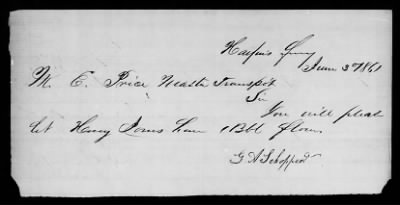 Harpers Ferry
June 3 1861
M. E. Price Master Transpt
Sir
You will pleas
let Henry have 1 Bbl flour
G A